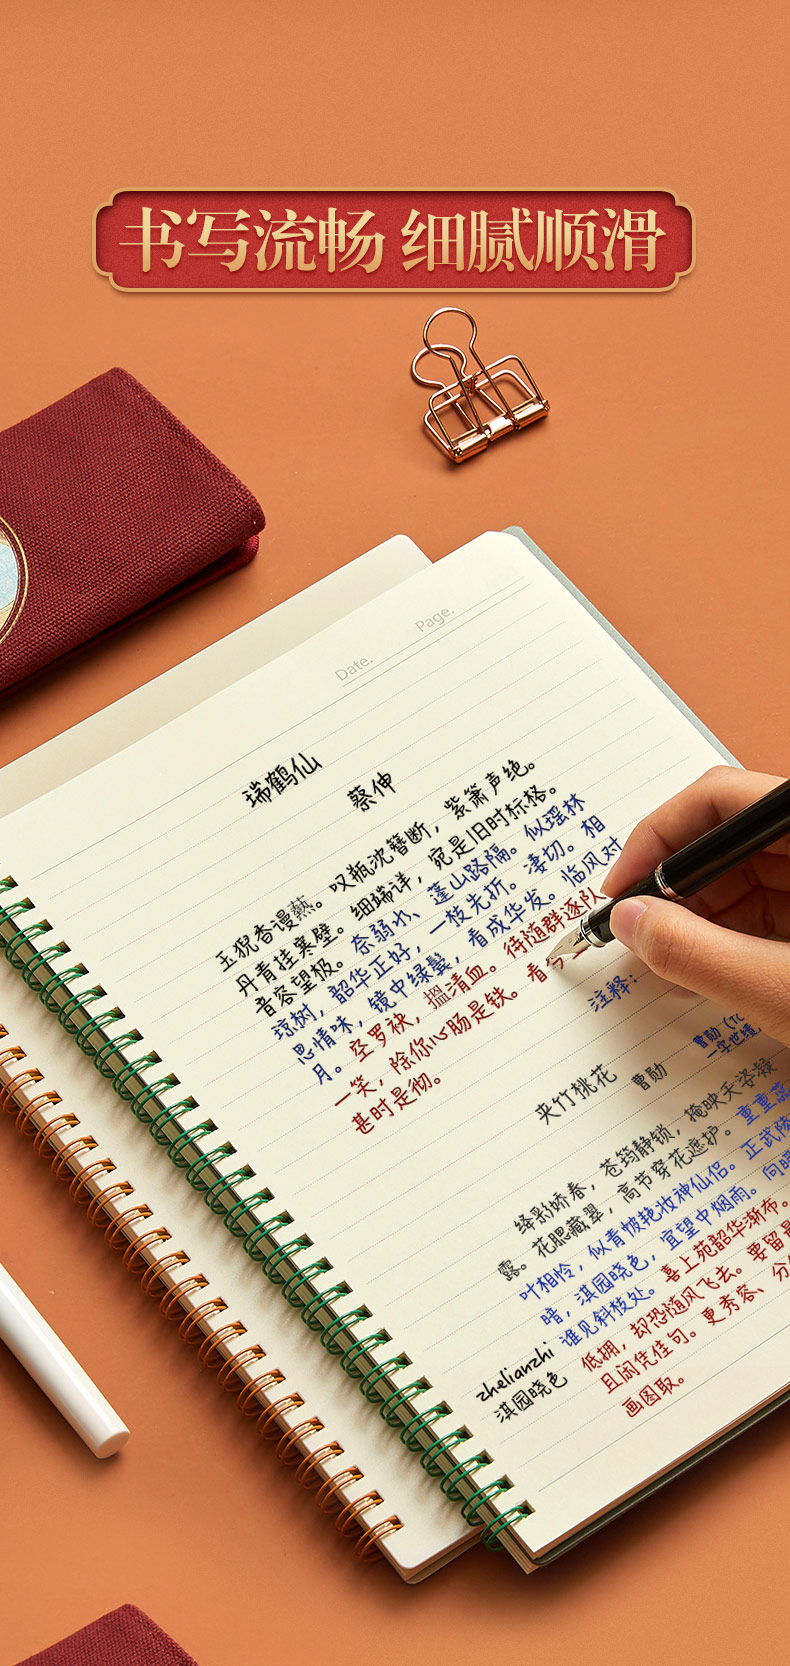 书写流畅 细腻顺滑
Date.
Page.
瑞鹤仙
蔡伸
玉猊香谩爇。叹瓶沈簪断，紫箫声绝。
丹青挂寒壁。细端详，宛是旧时标格。
音容望极。奈弱水、蓬山路隔。似瑶林
琼树，韶华正好，一枝先折。凄切。相
思情味，镜中绿鬓，看成华发。临风对
月。空罗袂，搵清血。待随群逐队
一笑，除你心肠是铁。看
甚时是彻。
注释：
曹勋
一字世绩
夹竹桃花
曹勋
绛彩娇春，苍筠静锁，掩映夭姿凝
露。花腮藏翠，高节穿花遮护。重重蕊
叶相怜，似青帔艳妆神仙侣。正武陵
暗，淇园晓色，宜望中烟雨。向暖
谁见斜枝处。喜上苑韶华渐布。
低拥，却恐随风飞去。要留最
且闲凭佳句。更秀容、分
画图取。
zhelianzhi
淇园晓色